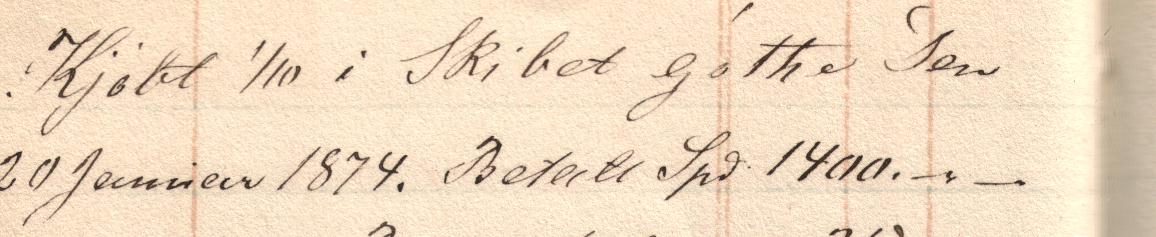 Kjöbt 1/10 i Skibet Göthe Den
20 Januar 1874. Betalt Spd 1400. - " -